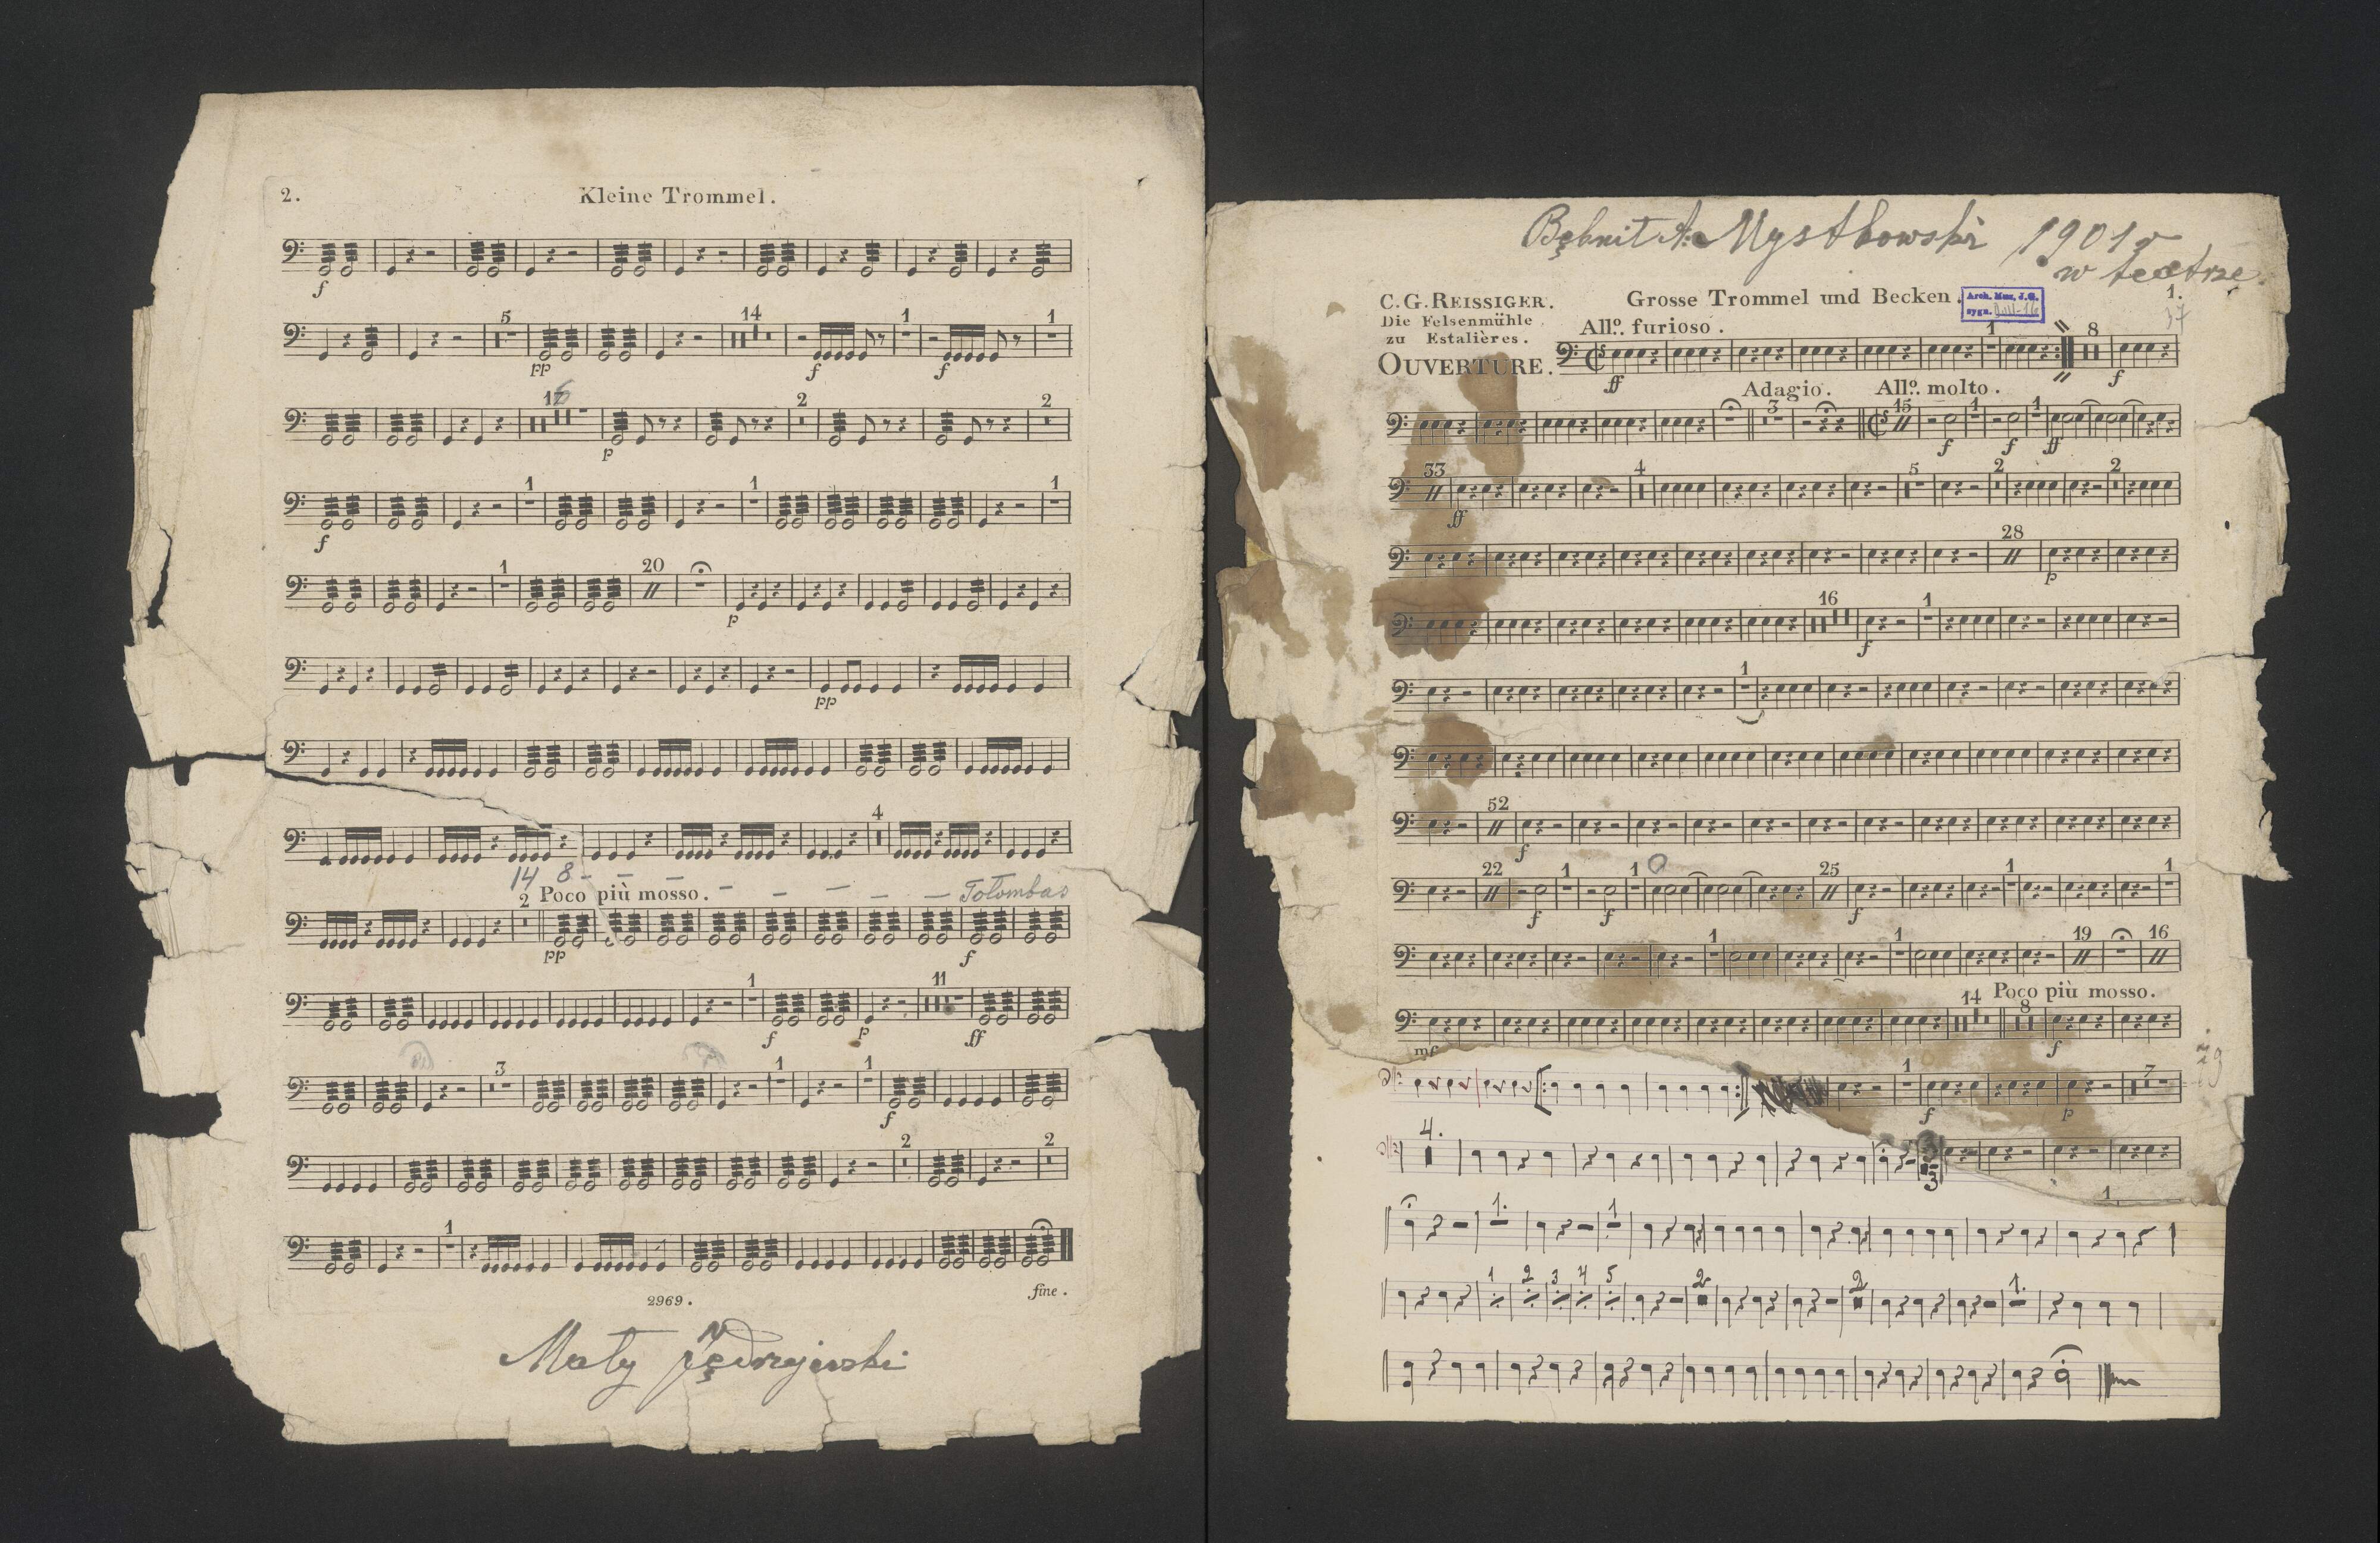 2.
Kleine Trommel.
f
5 14 1 1
pp f f
17 2 2
p
1 1 1
f
1 20
p
pp
4
14 8 - - - - - - - - Tolombas
2 Poco più mosso.
pp f
1 11
f p ff
3 1 1
f
2 2
1
fine.
2969.
Mały Jędrzejewski
Bębnił A. Mystkowski 1901 r
w teatrze
C.G. REISSIGER.
Grosse Trommel und Becken.
Arch. Muz. J.G.
sygn.
1.
37
Die Felsenmühle
zu Estalières.
OUVERTURE.
Allº. furioso.
1 8
ff f
Adagio. Allº. molto.
3 15 1 1
f f ff
33 4 5 2 2
ff
28
p
16 1
f
1
52
f
22 1 1 25 1 1
f f f
1 1 19 16
Poco più mosso.
14 8
mf f
1 7
f p
4. 3
1
1. 1
1 2 3 4 5 2 2 1.